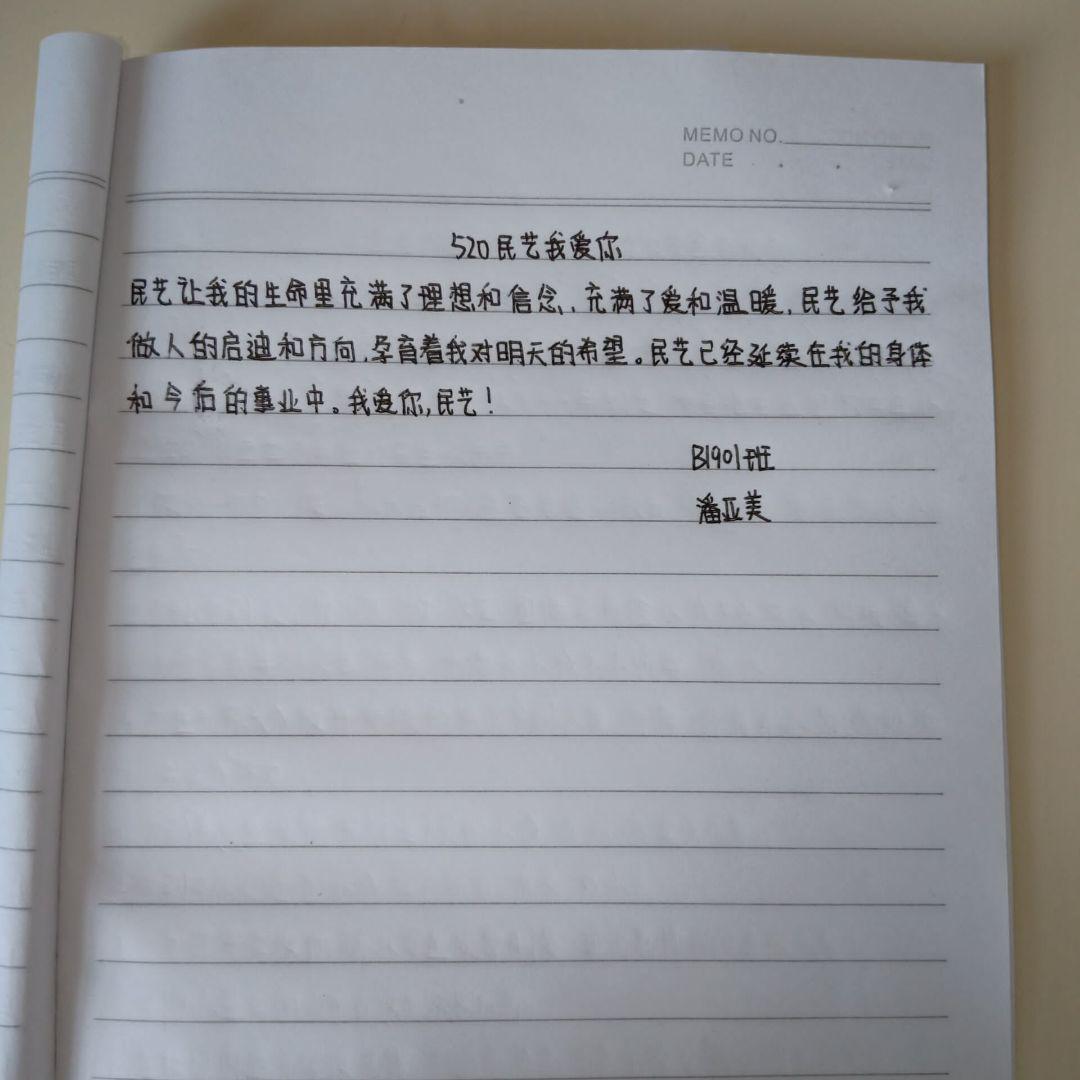 MEMO NO.
DATE . .
520民艺我爱你
民艺让我的生命里充满了理想和信念,充满了爱和温暖,民艺给予我
做人的启迪和方向,孕育着我对明天的希望。民艺已经延续在我的身体
和今后的事业中。我爱你,民艺!
B1901班
潘亚美